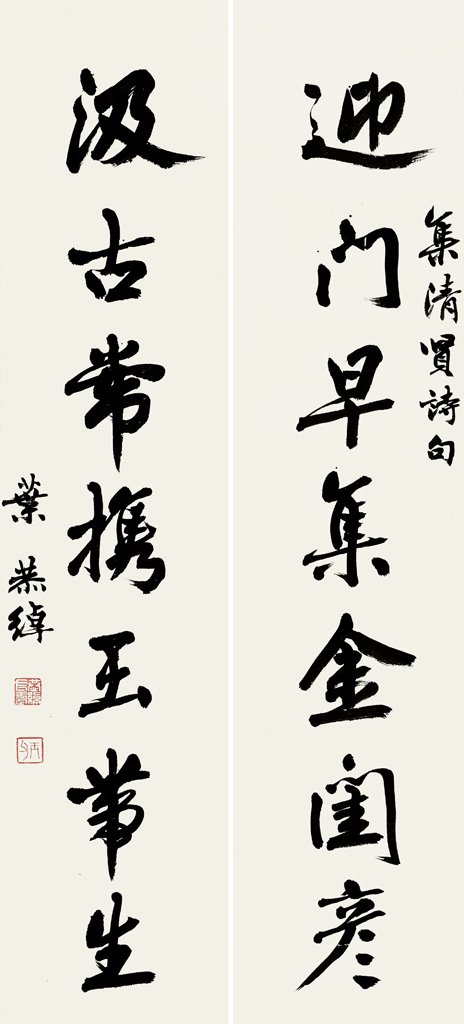 集清賢詩句
迎門早集金閨彥
汲古常携玉帶生
葉恭綽